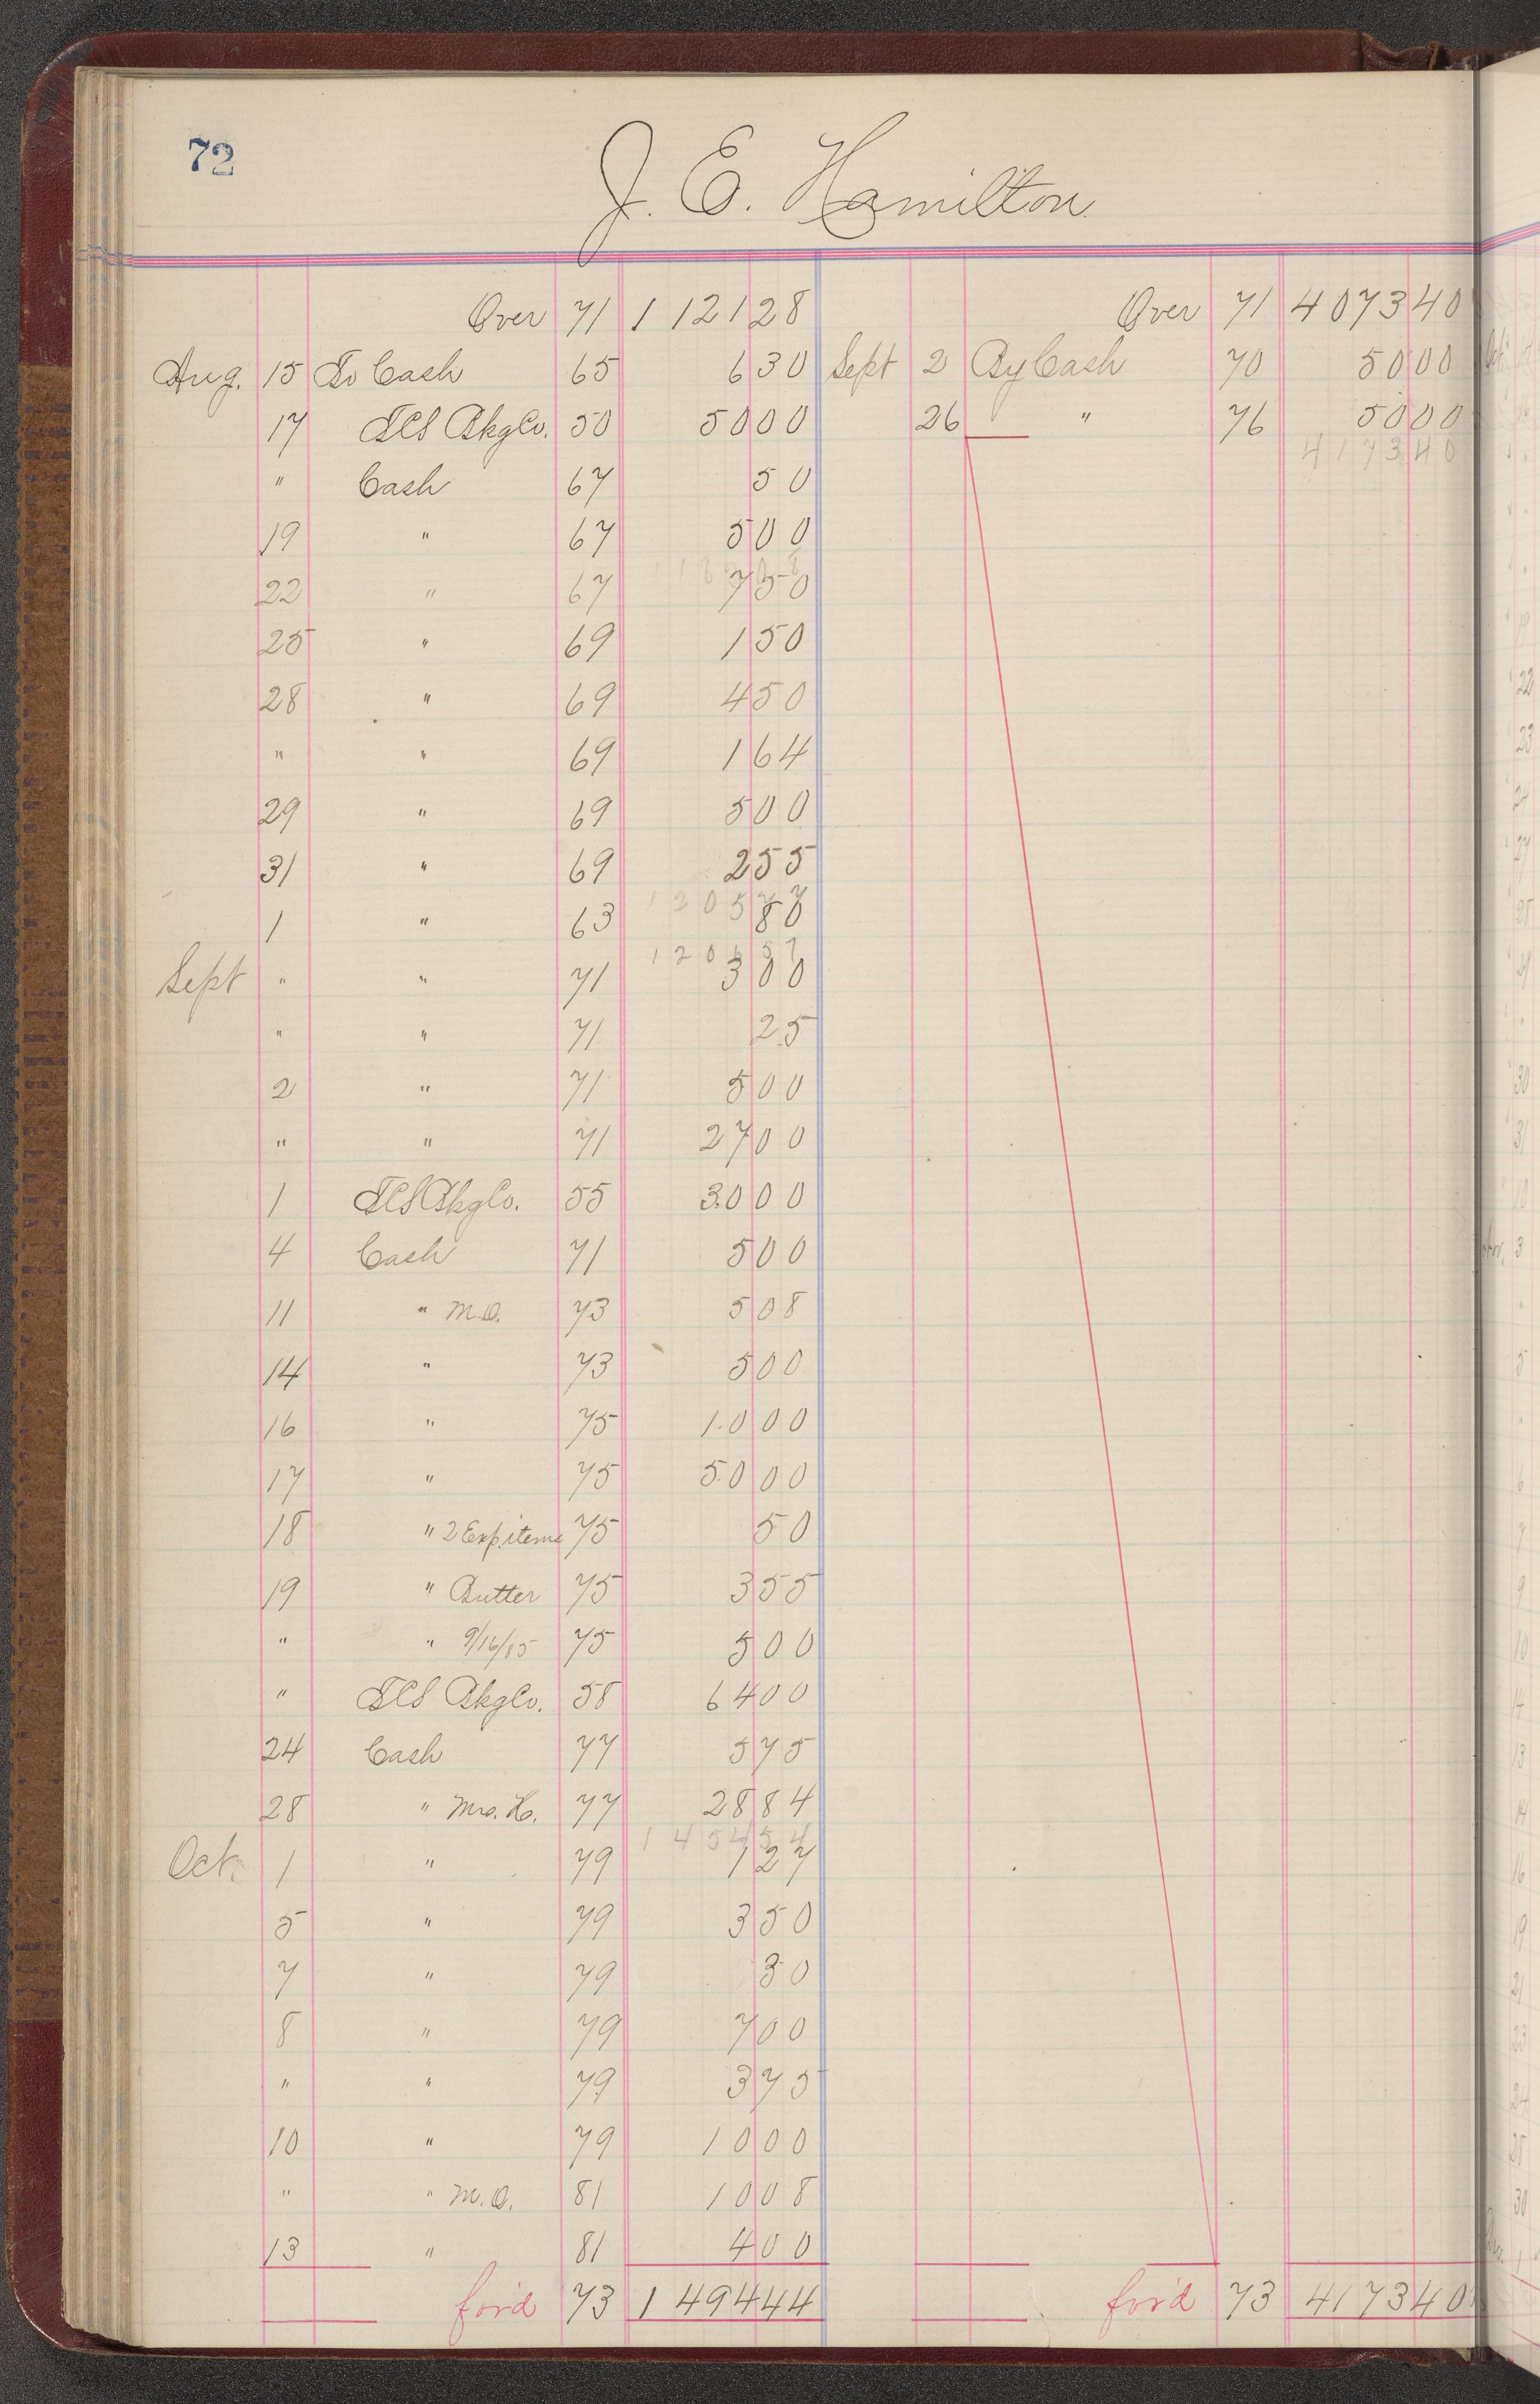 72
J. E. Hamilton
Over 71 1 121 28
Aug. 15 To Cash 65 6 30
17 50 50 00
" Cash 67 50
19 " 67 5 00
22 " 67 7 50
25 " 69 1 50
28 " 69 4 50
" " 69 1 64
29 " 69 5 00
31 " 69 2 55
1 205 77
1 " 63 80
1 206 57
Sept " " 71 3 00
" " 71 25
2 " 71 5 00
" " 71 27 00
1 55 30 00
4 Cash 71 5 00
11 " M.O. 73 5 08
14 " 73 5 00
16 " 75 10 00
17 " 75 50 00
18 " 2 Exp. items 75 50
19 " Butter 75 3 55
" " 9/16/85 75 5 00
" 58 64 00
24 Cash 77 5 75
28 " Mrs. H. 77 28 84
1 454 54
Oct. 1 " 79 1 27
5 " 79 3 50
7 " 79 30
8 " 79 7 00
" " 79 3 75
10 " 79 10 00
" " M.O. 81 10 08
13 " 81 4 00
for'd 73 1 494 44
Over 71 4 073 40
Sept 2 By Cash 70 50 00
26 " 76 50 00
4 173 40
for'd 73 4 173 40